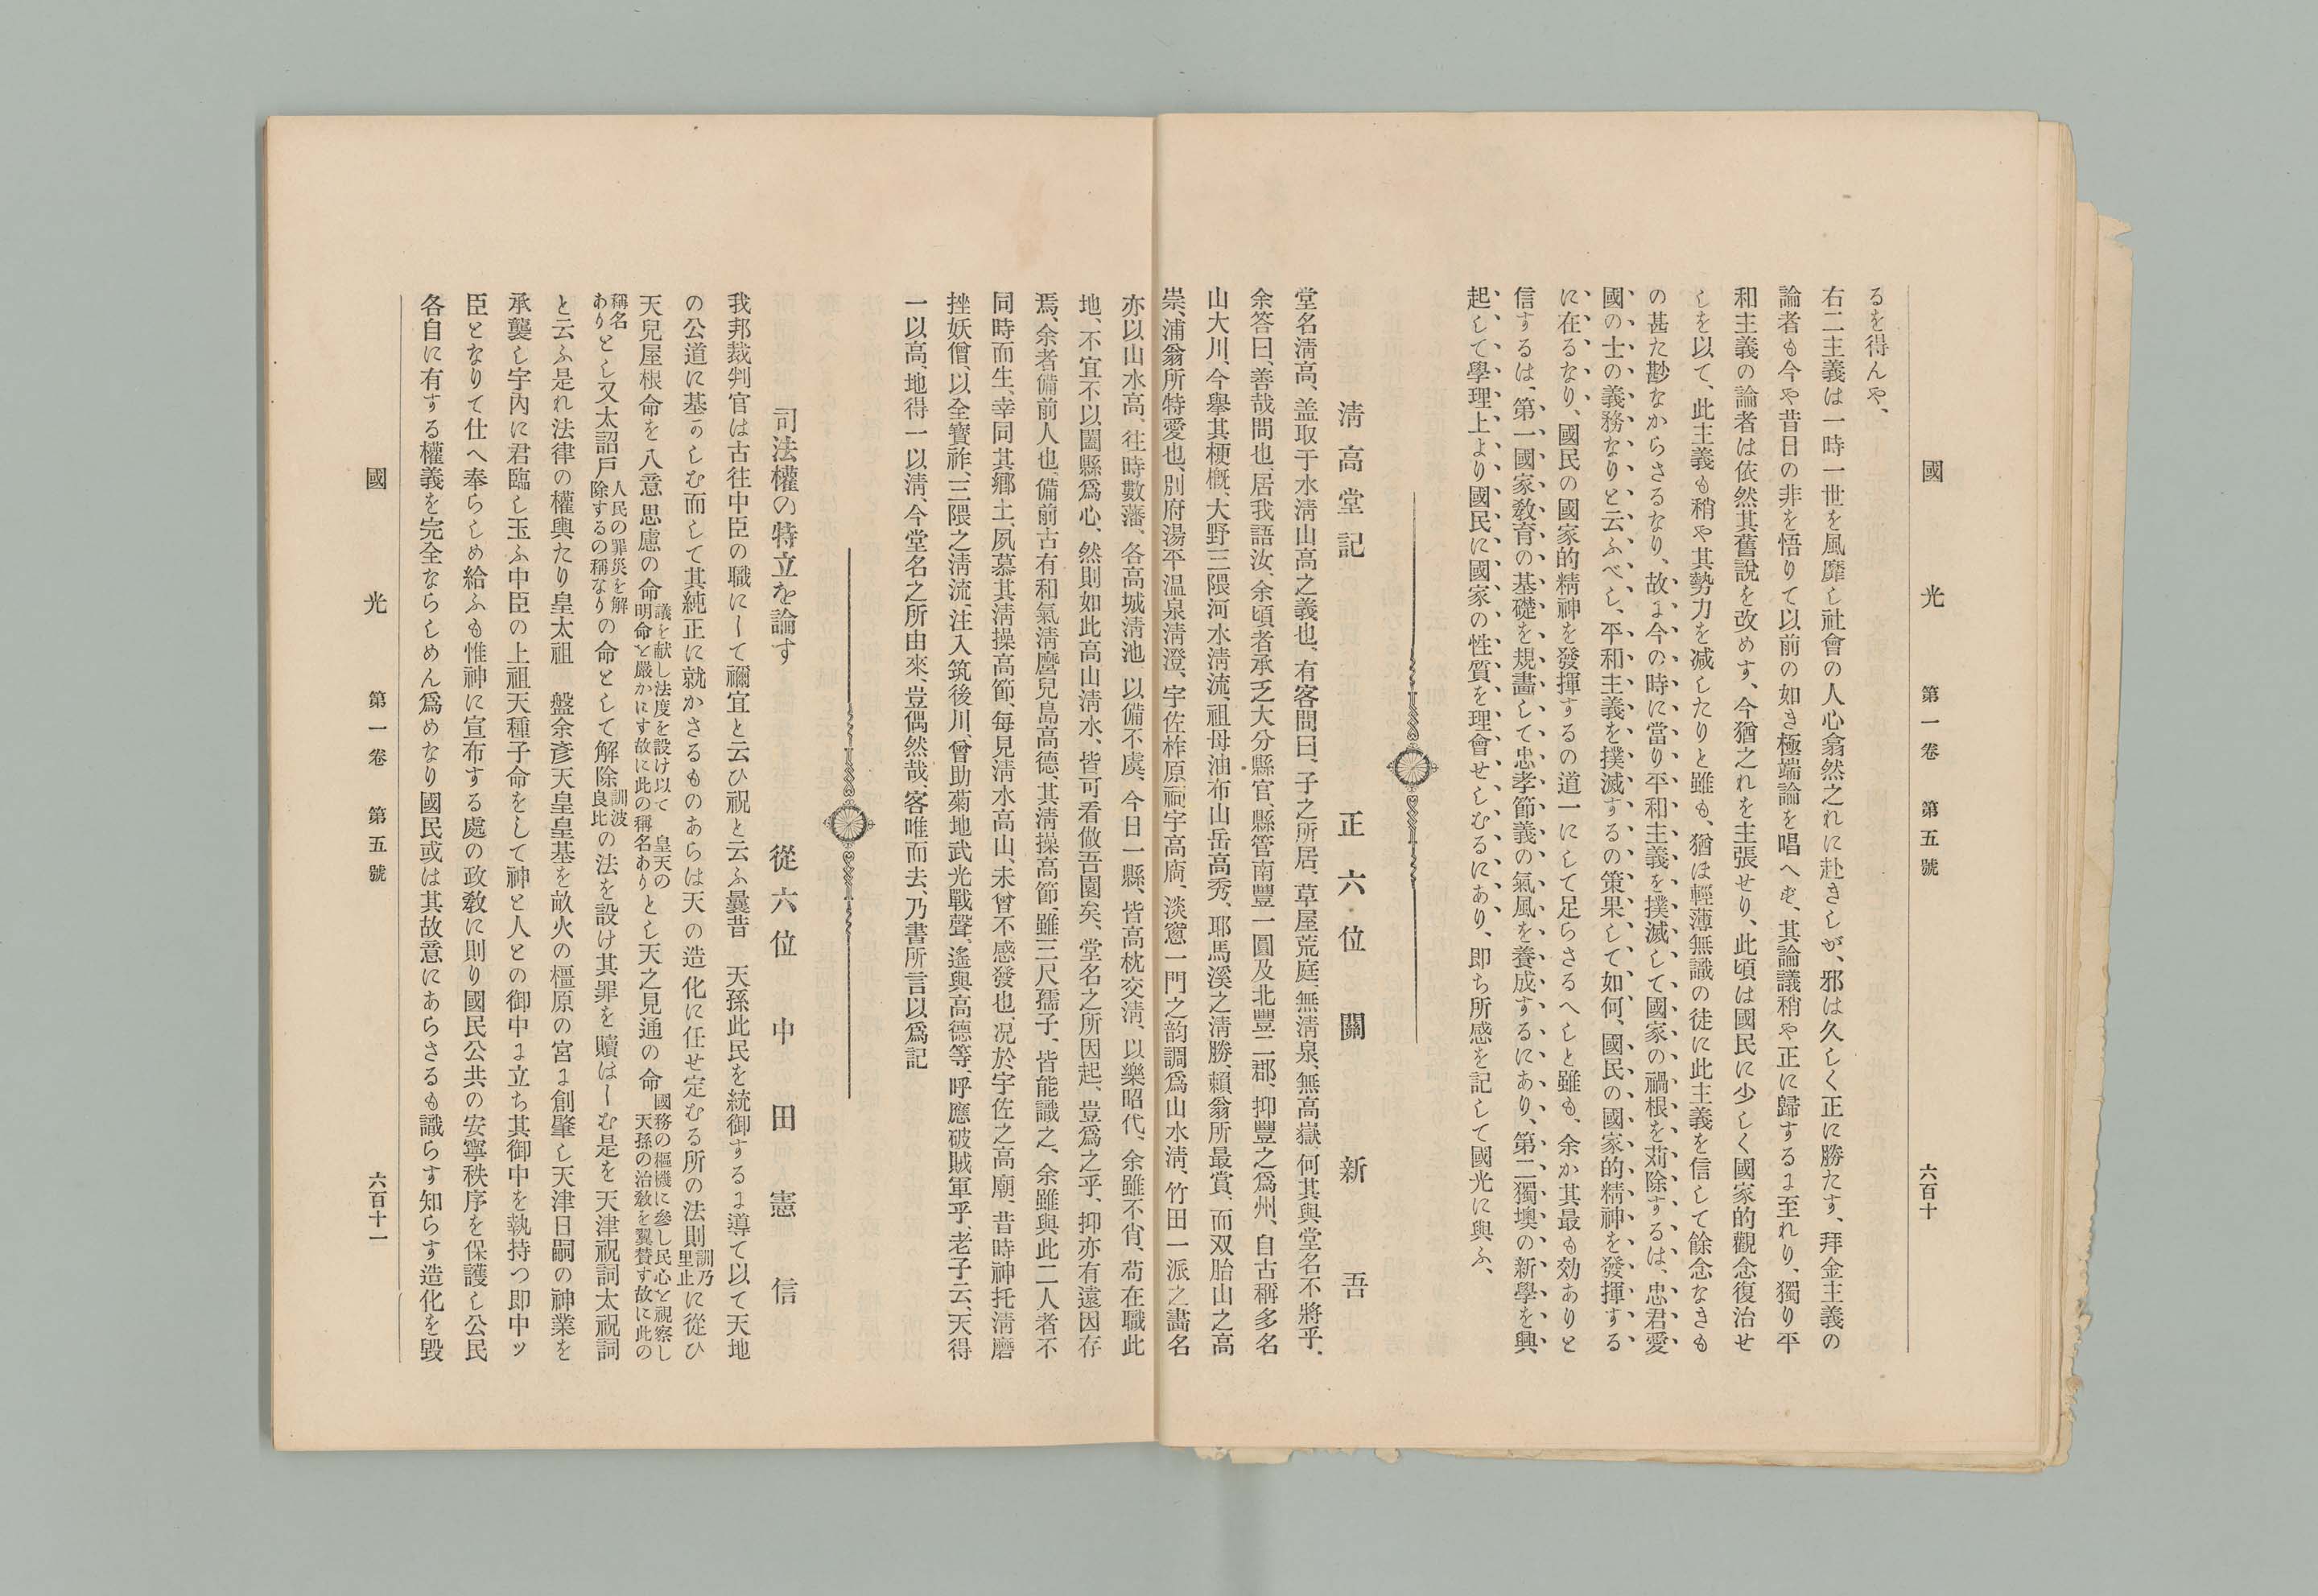 國光 第一卷 第五號 六百十
るを得んや、
右二主義は一時一世を風靡し社會の人心翕然之れに赴きしが、邪は久しく正に勝たす、拜金主義の
論者も今や昔日の非を悟りて以前の如き極端論を唱へず、其論議稍や正に歸するに至れり、獨り平
和主義の論者は依然其舊說を改めす、今猶之れを主張せり、此頃は國民に少しく國家的觀念復治せ
しを以て、此主義も稍や其勢力を减したりと雖も、猶ほ輕薄無識の徒に此主義を信して餘念なきも
の甚た尠なからさるなり、故に今の時に當り平和主義を撲滅して國家の禍根を苅除するは、忠君愛
國の士の義務なりと云ふべし、平和主義を撲滅するの策果して如何、國民の國家的精神を發揮する
に在るなり、國民の國家的精神を發揮するの道一にして足らさるへしと雖も、余か其最も効ありと
信するは、第一國家敎育の基礎を規畫して忠孝節義の氣風を養成するにあり、第二獨墺の新學を興
起して學理上より國民に國家の性質を理會せしむるにあり、即ち所感を記して國光に與ふ、
淸高堂記 正六位 關新吾
堂名淸高、盖取于水淸山高之義也、有客問曰、子之所居、草屋荒庭、無淸泉、無高嶽、何其與堂名不將乎、
余答曰、善哉問也、居我語汝、余頃者承乏大分縣官、縣管南豐一圓及北豐二郡、抑豐之爲州、自古稱多名
山大川、今擧其梗槪、大野三隈河水淸流、祖母油布山岳高秀、耶馬溪之淸勝、賴翁所最賞、而双胎山之高
崇、浦翁所特愛也、別府湯平温泉淸澄、宇佐柞原祠宇高廣、淡窓一門之韵調爲山水淸、竹田一派之畵名
亦以山水高、往時數藩、各高城淸池、以備不虞、今日一縣、皆高枕交淸、以樂昭代、余雖不肖、苟在職此
地、不宜不以闔縣爲心、然則如此高山淸水、皆可看做吾園矣、堂名之所因起、豈爲之乎、抑亦有遠因存
焉、余者備前人也、備前古有和氣淸麿兒島高德、其淸操高節、雖三尺孺子、皆能識之、余雖與此二人者不
同時而生、幸同其鄕土、夙慕其淸操高節、每見淸水高山、未曾不感發也、况於宇佐之高廟、昔時神托淸麿
挫妖僧、以全寶祚、三隈之淸流、注入筑後川、曾助菊地武光戰聲、遙與高德等、呼應破賊軍乎、老子云、天得
一以高、地得一以淸、今堂名之所由來、豈偶然哉、客唯而去、乃書所言以爲記
司法權の特立を論す 從六位 中田憲信
我邦裁判官は古往中臣の職にして禰宜と云ひ祝と云ふ曩昔 天孫此民を統御するに導て以て天地
の公道に基かしむ而して其純正に就かさるものあらは天の造化に任せ定むる所の法則訓乃里止に從ひ
天兒屋根命を八意思慮の命議を献し法度を設け以て皇天の明命を嚴かにす故に此の稱名ありとし天之見通の命國務の樞機に參し民心を視察し天孫の治敎を翼賛す故に此の
稱名ありとし又太詔戶人民の罪災を解除するの稱なりの命として解除訓波良比の法を設け其罪を贖はしむ是を天津祝詞太祝詞
と云ふ是れ法律の權輿たり皇太祖 盤余彥天皇皇基を畝火の橿原の宮に創肇し天津日嗣の神業を
承襲し宇內に君臨し玉ふ中臣の上祖天種子命をして神と人との御中に立ち其御中を執持つ即中ッ
臣となりて仕へ奉らしめ給ふも惟神に宣布する處の政敎に則り國民公共の安寧秩序を保護し公民
各自に有する權義を完全ならしめん爲めなり國民或は其故意にあらさるも識らす知らす造化を毀
國光 第一卷 第五號 六百十一